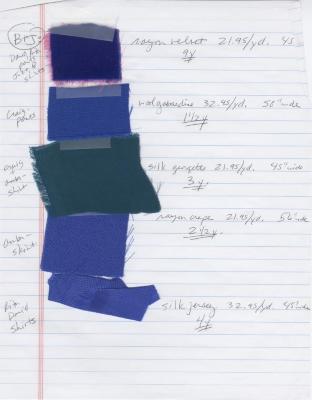 B+J
rayon velvet 21.95/yd. 45
9y
Craig-
pants
wool gabardine 32.95/yd. 56" wide
1 1/2 y
Craig
amber-
shirt
silk georgette 21.95/yd. 45" wide
3 y
amber-
skirt
rayon crepe 21.95/yd. 56" wide
2 1/2 y
David
shirts
silk jersey 32.95/yd. 45" wide
4y